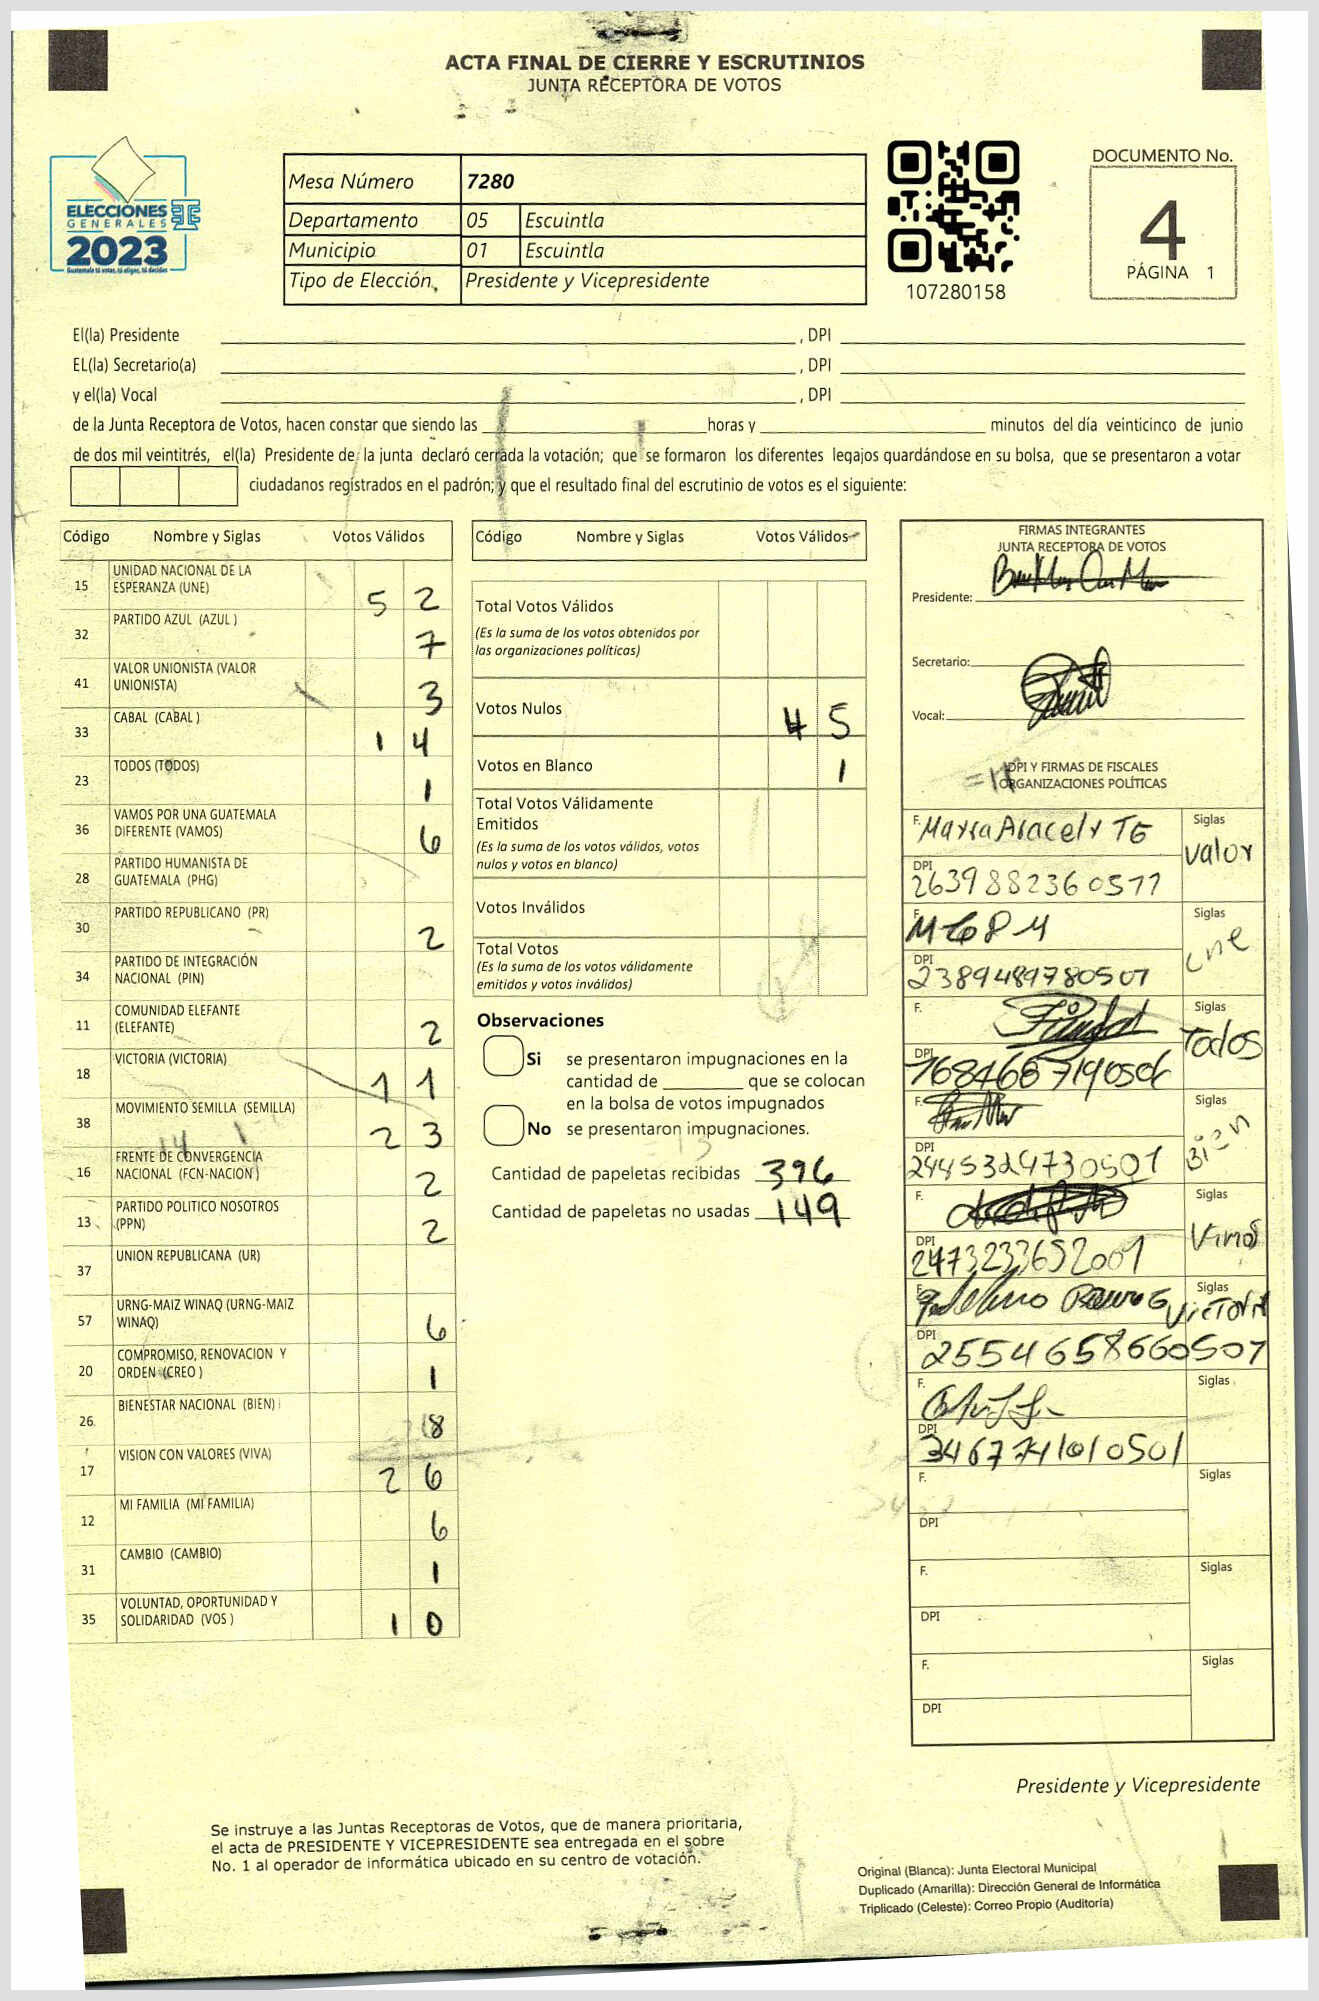 ACTA FINAL DE CIERRE Y ESCRUTINIOS
JUNTA RECEPTORA DE VOTOS
ELECCIONES
GENERALES
2023
Guatemala tú votas, tú eliges, tú decides
Mesa Número 7280
Departamento 05 Escuintla
Municipio 01 Escuintla
Tipo de Elección Presidente y Vicepresidente
107280158
DOCUMENTO No.
4
PÁGINA 1
El(la) Presidente , DPI
EL(la) Secretario(a) , DPI
y el(la) Vocal , DPI
de la Junta Receptora de Votos, hacen constar que siendo las horas y minutos del día veinticinco de junio
de dos mil veintitrés, el(la) Presidente de la junta declaró cerrada la votación; que se formaron los diferentes legajos guardándose en su bolsa, que se presentaron a votar
ciudadanos registrados en el padrón; y que el resultado final del escrutinio de votos es el siguiente:
Código Nombre y Siglas Votos Válidos
15 UNIDAD NACIONAL DE LA ESPERANZA (UNE) 52
32 PARTIDO AZUL (AZUL ) 7
41 VALOR UNIONISTA (VALOR UNIONISTA) 3
33 CABAL (CABAL ) 14
23 TODOS (TODOS) 1
36 VAMOS POR UNA GUATEMALA DIFERENTE (VAMOS) 6
28 PARTIDO HUMANISTA DE GUATEMALA (PHG)
30 PARTIDO REPUBLICANO (PR) 2
34 PARTIDO DE INTEGRACIÓN NACIONAL (PIN)
11 COMUNIDAD ELEFANTE (ELEFANTE) 2
18 VICTORIA (VICTORIA) 11
38 MOVIMIENTO SEMILLA (SEMILLA) 23
16 FRENTE DE CONVERGENCIA NACIONAL (FCN-NACION ) 2
13 PARTIDO POLITICO NOSOTROS (PPN) 2
37 UNION REPUBLICANA (UR)
57 URNG-MAIZ WINAQ (URNG-MAIZ WINAQ) 6
20 COMPROMISO, RENOVACION Y ORDEN (CREO ) 1
26 BIENESTAR NACIONAL (BIEN) 8
17 VISION CON VALORES (VIVA) 26
12 MI FAMILIA (MI FAMILIA) 6
31 CAMBIO (CAMBIO) 1
35 VOLUNTAD, OPORTUNIDAD Y SOLIDARIDAD (VOS ) 10
Código Nombre y Siglas Votos Válidos
Total Votos Válidos
(Es la suma de los votos obtenidos por
las organizaciones políticas)
Votos Nulos 45
Votos en Blanco 1
Total Votos Válidamente
Emitidos
(Es la suma de los votos válidos, votos
nulos y votos en blanco)
Votos Inválidos
Total Votos
(Es la suma de los votos válidamente
emitidos y votos inválidos)
Observaciones
Si se presentaron impugnaciones en la
cantidad de que se colocan
en la bolsa de votos impugnados
No se presentaron impugnaciones.
Cantidad de papeletas recibidas 396
Cantidad de papeletas no usadas 149
FIRMAS INTEGRANTES
JUNTA RECEPTORA DE VOTOS
Presidente:
Secretario:
Vocal:
DPI Y FIRMAS DE FISCALES
ORGANIZACIONES POLÍTICAS
F. Mayra Aracely TG Siglas valor
DPI 2639882360577
F. Siglas une
DPI 2389489780501
F. Siglas Todos
DPI 1684687190506
F. Siglas Bien
DPI 2445324730501
F. Siglas
DPI 2473233652001
F. Siglas VICTORIA
DPI 2554658660501
F. Siglas
DPI 3467741010501
F. Siglas
DPI
F. Siglas
DPI
F. Siglas
DPI
Presidente y Vicepresidente
Se instruye a las Juntas Receptoras de Votos, que de manera prioritaria,
el acta de PRESIDENTE Y VICEPRESIDENTE sea entregada en el sobre
No. 1 al operador de informática ubicado en su centro de votación.
Original (Blanca): Junta Electoral Municipal
Duplicado (Amarilla): Dirección General de Informática
Triplicado (Celeste): Correo Propio (Auditoría)